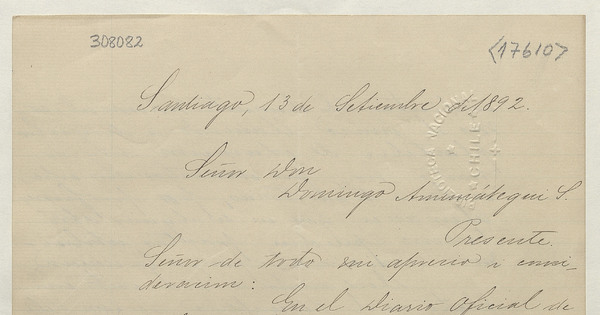 308082
<17610>
Santiago, 13 de Setiembre de 1892.
BIBLIOTECA NACIONAL
CHILE
Señor Don
Domingo Amunátegui S.
Presente.
Señor de todo mi aprecio i consi-
deracion:
En el Diario Oficial de